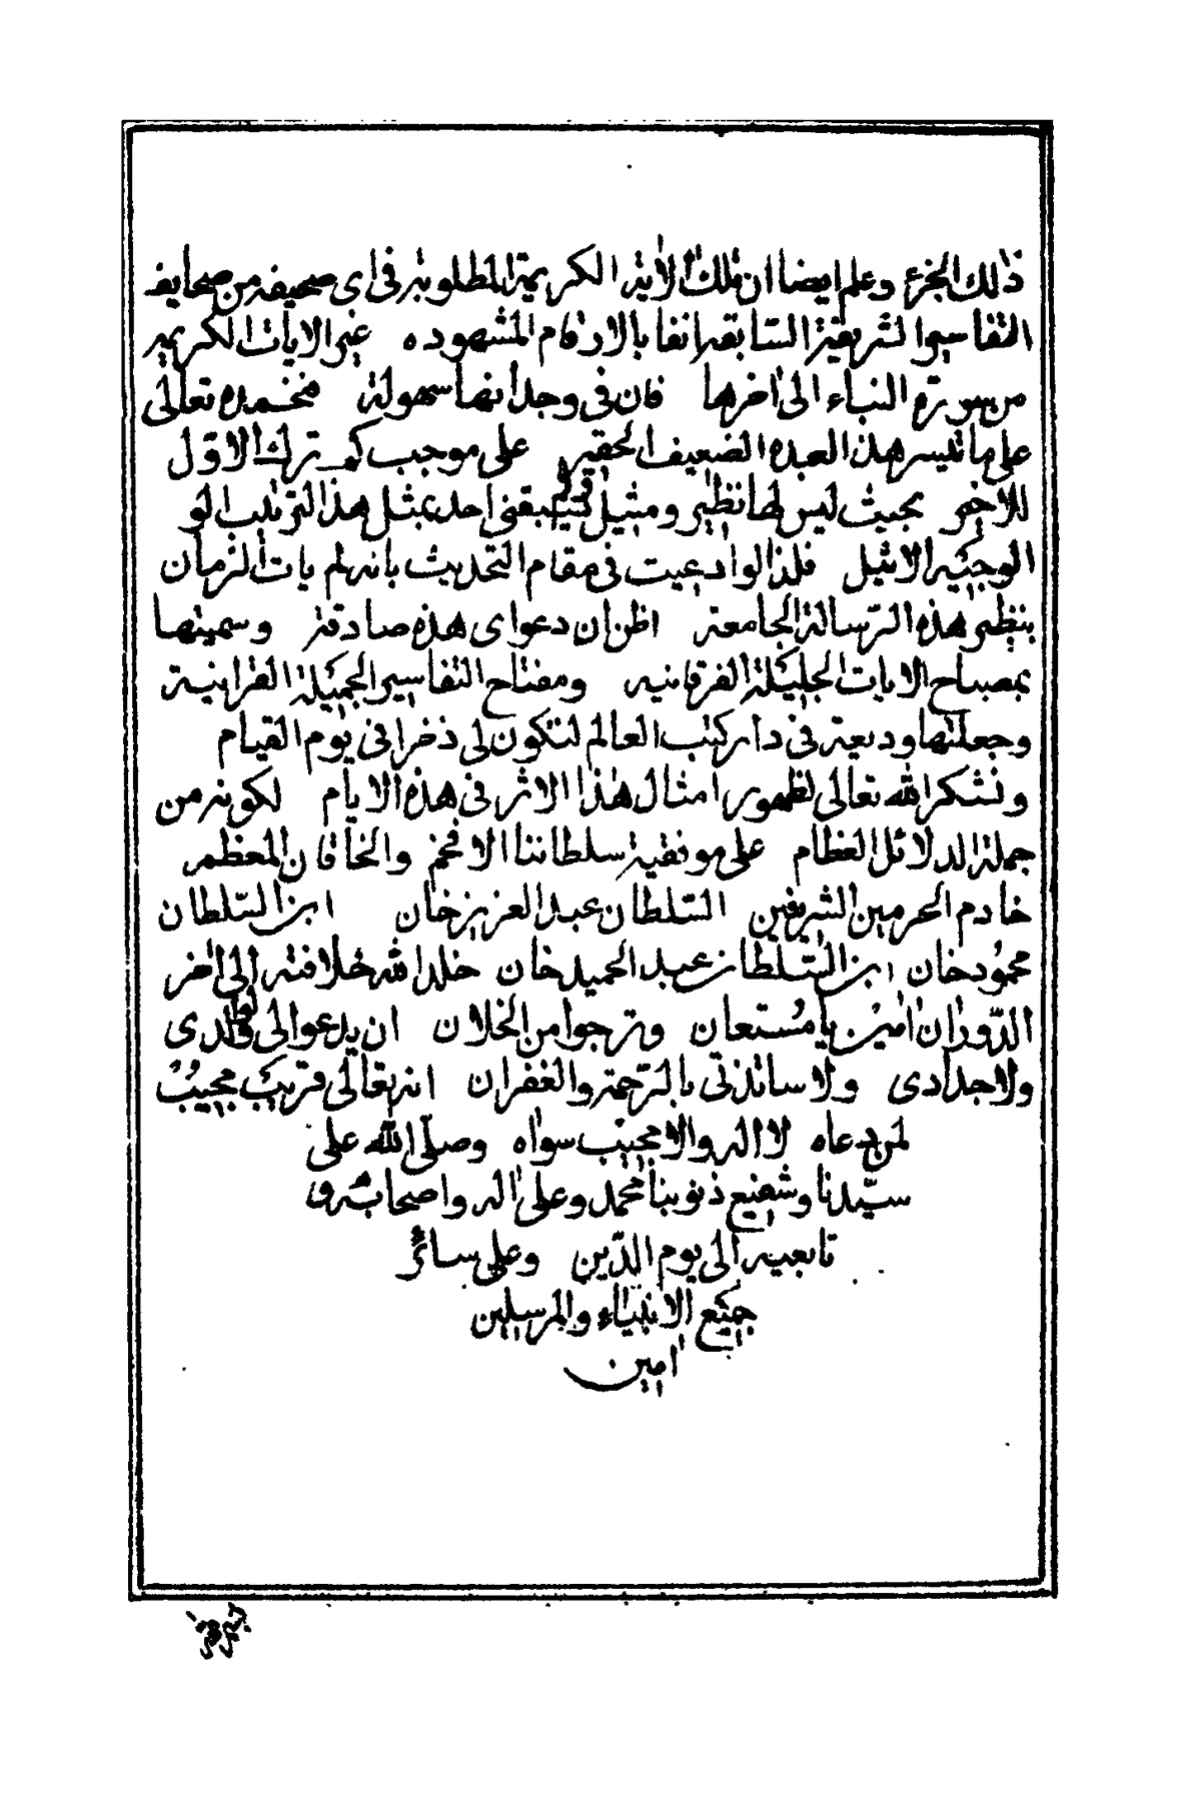 ذلك الجزء وعلم ايضا ان تلك الاية الكريمة المطلوبة فى اى صحيفة من صحايف
التفاسير الشريفة السابقة انفا بالارقام المشهوده غير الايات الكريمة
من سورة النباء الى اخرها فان فى وجدانها سهولة فنحمده تعالى
على ما تيسر هذا العبده الضعيف الحقير على موجب كم ترك الاول
للاخر بحيث ليس لها نظير ومثيل يسبقنى احد بمثل هذا الترتيب الو
الوجيه الاثيل فلذا لو ادعيت فى مقام التحديث بانه لم يات الزمان
بنظير هذه الرسالة الجامعة اظن ان دعواى هذه صادقة وسميتها
بمصباح الايات الجليلة الفرقانيه ومفتاح التفاسير الجميلة القرانية
وجعلتها وديعة فى دار كتب العالم لتكون لى ذخرا فى يوم القيام
ونشكر الله تعالى لظهور امثال هذا الاثر فى هذه الايام لكونه من
جملة الدلائل العظام على موفقية سلطاننا الافخم والخاقان المعظم
خادم الحرمين الشريفين السلطان عبد العزيز خان ابن السلطان
محمود خان ابن السلطان عبد الحميد خان خلد الله خلافته الى اخر
الدوران امين يا مستعان ونرجوا من الخلان ان يدعوا لى ولوالدى
ولاجدادى ولاساتذتى بالرحمة والغفران انه تعالى قريب مجيب
لمن دعاه لا اله ولا مجيب سواه وصلى الله على
سيدنا وشفيع ذنوبنا محمد وعلى اله واصحابه و
تابعيه الى يوم الدين وعلى سائر
جميع الانبياء والمرسلين
امين